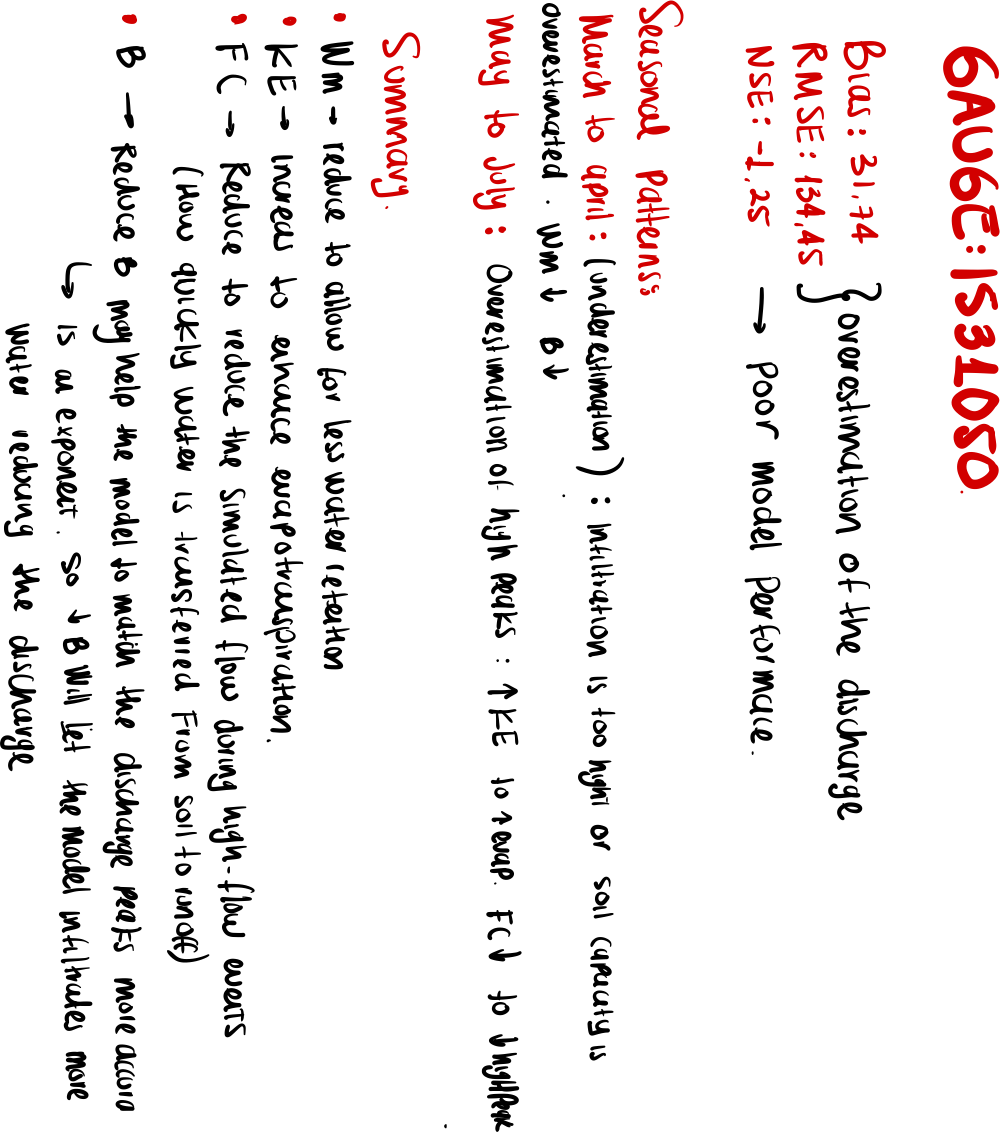 GAUGE: IS31050.
Bias: 31,74
RMSE: 134,45 } overestimation of the discharge
NSE: -1,25 → Poor model performace.
Seasonal patterns:
March to april: (underestimation): infiltration is too hight or soil capacity is
overestimated. Wm ↓ B ↓
May to July: Overestimation of high peaks: ↑ KE to ↑ evap. FC ↓ to ↓ highpeak
Summary.
• Wm → reduce to allow for less water retention
• KE → Increas to enhance evapotranspiration.
• FC → Reduce to reduce the simulated flow during high-flow events
(How quickly water is transferred From soil to runoff)
• B → Reduce B may help the model to match the discharge peaks more accura
↳ is as exponent. so ↓ B Will let the model infiltrates more
water reducing the discharge